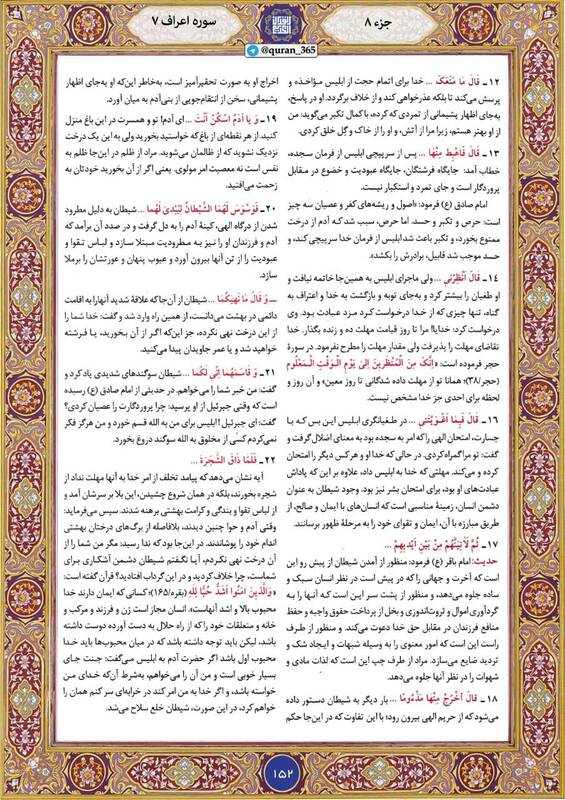 جزء ۸
سوره اعراف ۷
@quran_365
۱۲ـ قَالَ مَا مَنَعَکَ ... خدا برای اتمام حجت از ابلیس مؤاخذه و
پرسش می‌کند تا بلکه عذرخواهی کند و از خلاف برگردد. او در پاسخ،
به‌جای اظهار پشیمانی از تمردی که کرده، با کمال تکبر می‌گوید: من
از او بهتر هستم، زیرا مرا از آتش، و او را از خاک و گِل خلق کردی.
۱۳ـ قَالَ فَاهْبِطْ مِنْهَا ... پس از سرپیچی ابلیس از فرمان سجده،
خطاب آمد: جایگاه فرشتگان، جایگاه عبودیت و خضوع در مقابل
پروردگار است و جای تمرد و استکبار نیست.
امام صادق (ع) فرمود: «اصول و ریشه‌های کفر و عصیان سه چیز
است: حرص و تکبر و حسد. اما حرص، سبب شد که آدم از درخت
ممنوع بخورد، و تکبر باعث شد ابلیس از فرمان خدا سرپیچی کند، و
حسد موجب شد قابیل، برادرش را بکشد».
۱۴ـ قَالَ أَنْظِرْنِي ... ولی ماجرای ابلیس به همین‌جا خاتمه نیافت و
او طغیان را بیشتر کرد و به‌جای توبه و بازگشت به خدا و اعتراف به
گناه، تنها چیزی که از خدا درخواست کرد مزد عبادت بود. وی
درخواست کرد: خدایا! مرا تا روز قیامت مهلت ده و زنده بگذار. خدا
تقاضای مهلت را پذیرفت ولی مقدار مهلت را مطرح نفرمود. در سورهٔ
حجر فرموده است: «إِنَّکَ مِنَ الْمُنْظَرِينَ إِلَىٰ يَوْمِ الْوَقْتِ الْمَعْلُومِ
(حجر/۳۸)؛ همانا تو از مهلت داده شدگانی تا روز معین»، و آن روز و
لحظه برای احدی جز خدا مشخص نیست.
۱۶ـ قَالَ فَبِمَا أَغْوَيْتَنِي ... در طغیانگری ابلیس این بس که با
جسارت، امتحان الهی را که امر به سجده بود به معنای اضلال گرفت و
گفت: تو مرا گمراه کردی. در حالی که خدا او و هرکس دیگر را امتحان
کرده و می‌کند. مهلتی که خدا به ابلیس داد، علاوه بر این که پاداش
عبادت‌های او بود، برای امتحان بشر نیز بود. وجود شیطان به عنوان
دشمن انسان، زمینهٔ مناسبی است که انسان‌های با ایمان و صالح، از
طریق مبارزه با آن، ایمان و تقوای خود را به مرحلهٔ ظهور برسانند.
۱۷ـ ثُمَّ لَآتِيَنَّهُمْ مِنْ بَيْنِ أَيْدِيهِمْ ...
حدیث: امام باقر (ع) فرمود: منظور از آمدن شیطان از پیش رو این
است که آخرت و جهانی را که در پیش است در نظر انسان سبک و
ساده جلوه می‌دهد، و منظور از پشت سر این است که آنها را به
گردآوری اموال و ثروت‌اندوزی و بخل از پرداخت حقوق واجبه و حفظ
منافع فرزندان در مقابل حق خدا دعوت می‌کند. و منظور از طرف
راست این است که امور معنوی را به وسیله شبهات و ایجاد شک و
تردید ضایع می‌سازد. مراد از طرف چپ این است که لذات مادی و
شهوات را در نظر آنها جلوه می‌دهد.
۱۸ـ قَالَ اخْرُجْ مِنْهَا مَذْءُومًا ... بار دیگر به شیطان دستور داده
می‌شود که از حریم الهی بیرون رود؛ با این تفاوت که در این‌جا حکم
اخراج او به صورت تحقیرآمیز است، به‌خاطر این‌که او به‌جای اظهار
پشیمانی، سخن از انتقام‌جویی از بنی‌آدم به میان آورد.
۱۹ـ وَ يَا آدَمُ اسْکُنْ أَنْتَ ... ای آدم! تو و همسرت در این باغ منزل
کنید. از هر نقطه‌ای از باغ که خواستید بخورید ولی به این یک درخت
نزدیک نشوید که از ظالمان می‌شوید. مراد از ظلم در این‌جا ظلم به
نفس است نه معصیت امر مولوی. یعنی اگر از آن بخورید خودتان به
زحمت می‌افتید.
۲۰ـ فَوَسْوَسَ لَهُمَا الشَّيْطَانُ لِيُبْدِيَ لَهُمَا ... شیطان به دلیل مطرود
شدن از درگاه الهی، کینهٔ آدم را به دل گرفت و در صدد آن برآمد که
آدم و فرزندان او را نیز به مطرودیت مبتلا سازد و لباس تقوا و
عبودیت را از تن آنها بیرون آورد و عیوب پنهان و عورتشان را برملا
سازد.
ـ وَ قَالَ مَا نَهَيکُمَا ... شیطان از آن‌جا که علاقهٔ شدید آنها را به اقامت
دائمی در بهشت می‌دانست، از همین راه وارد شد و گفت: خدا شما را
از این درخت نهی نکرده، جز این‌که اگر از آن بخورید، یا فرشته
خواهید شد و یا عمر جاویدان پیدا می‌کنید.
۲۱ـ وَ قَاسَمَهُمَا إِنِّي لَکُمَا ... شیطان سوگندهای شدیدی یاد کرد و
گفت: من خیر شما را می‌خواهم. در حدیثی از امام صادق (ع) رسیده
است که وقتی جبرئیل از او پرسید: چرا پروردگارت را عصیان کردی؟
گفت: ای جبرئیل! ابلیس برای من به الله قسم خورد و من هرگز فکر
نمی‌کردم کسی از مخلوق به الله سوگند دروغ بخورد.
۲۲ـ فَلَمَّا ذَاقَ الشَّجَرَةَ ...
آیه نشان می‌دهد که پیامد تخلف از امر خدا به آنها مهلت نداد از
شجره بخورند، بلکه در همان شروع چشیدن، این بلا بر سرشان آمد و
از لباس تقوا و بندگی و کرامت بهشتی برهنه شدند. سپس می‌فرماید:
وقتی آدم و حوا چنین دیدند، بلافاصله از برگ‌های درختان بهشتی
اندام خود را پوشاندند. در این‌جا بود که ندا رسید: مگر من شما را از
آن درخت نهی نکردم، آیا نگفتم شیطان دشمن آشکاری برای
شماست، چرا خلاف کردید و در این گرداب افتادید؟ قرآن گفته است:
«وَالَّذِينَ آمَنُوا أَشَدُّ حُبًّا لِلَّهِ (بقره/۱۶۵)؛ کسانی که ایمان دارند خدا
محبوب بالا و اشد آنهاست». انسان مجاز است زن و فرزند و مرکب و
خانه و متعلقات خود را که از راه حلال به دست آورده دوست داشته
باشد، لیکن باید توجه داشته باشد که در میان محبوب‌ها باید خدا
محبوب اول باشد. اگر حضرت آدم به ابلیس می‌گفت: جنت جای
بسیار خوبی است و من آن را می‌خواهم، به‌شرط آن‌که خدای من
خواسته باشد، و اگر خدا به من امر کند در خرابه‌ای سر کنم همان را
خواهم کرد، در این صورت، شیطان خلع سلاح می‌شد.
۱۵۲